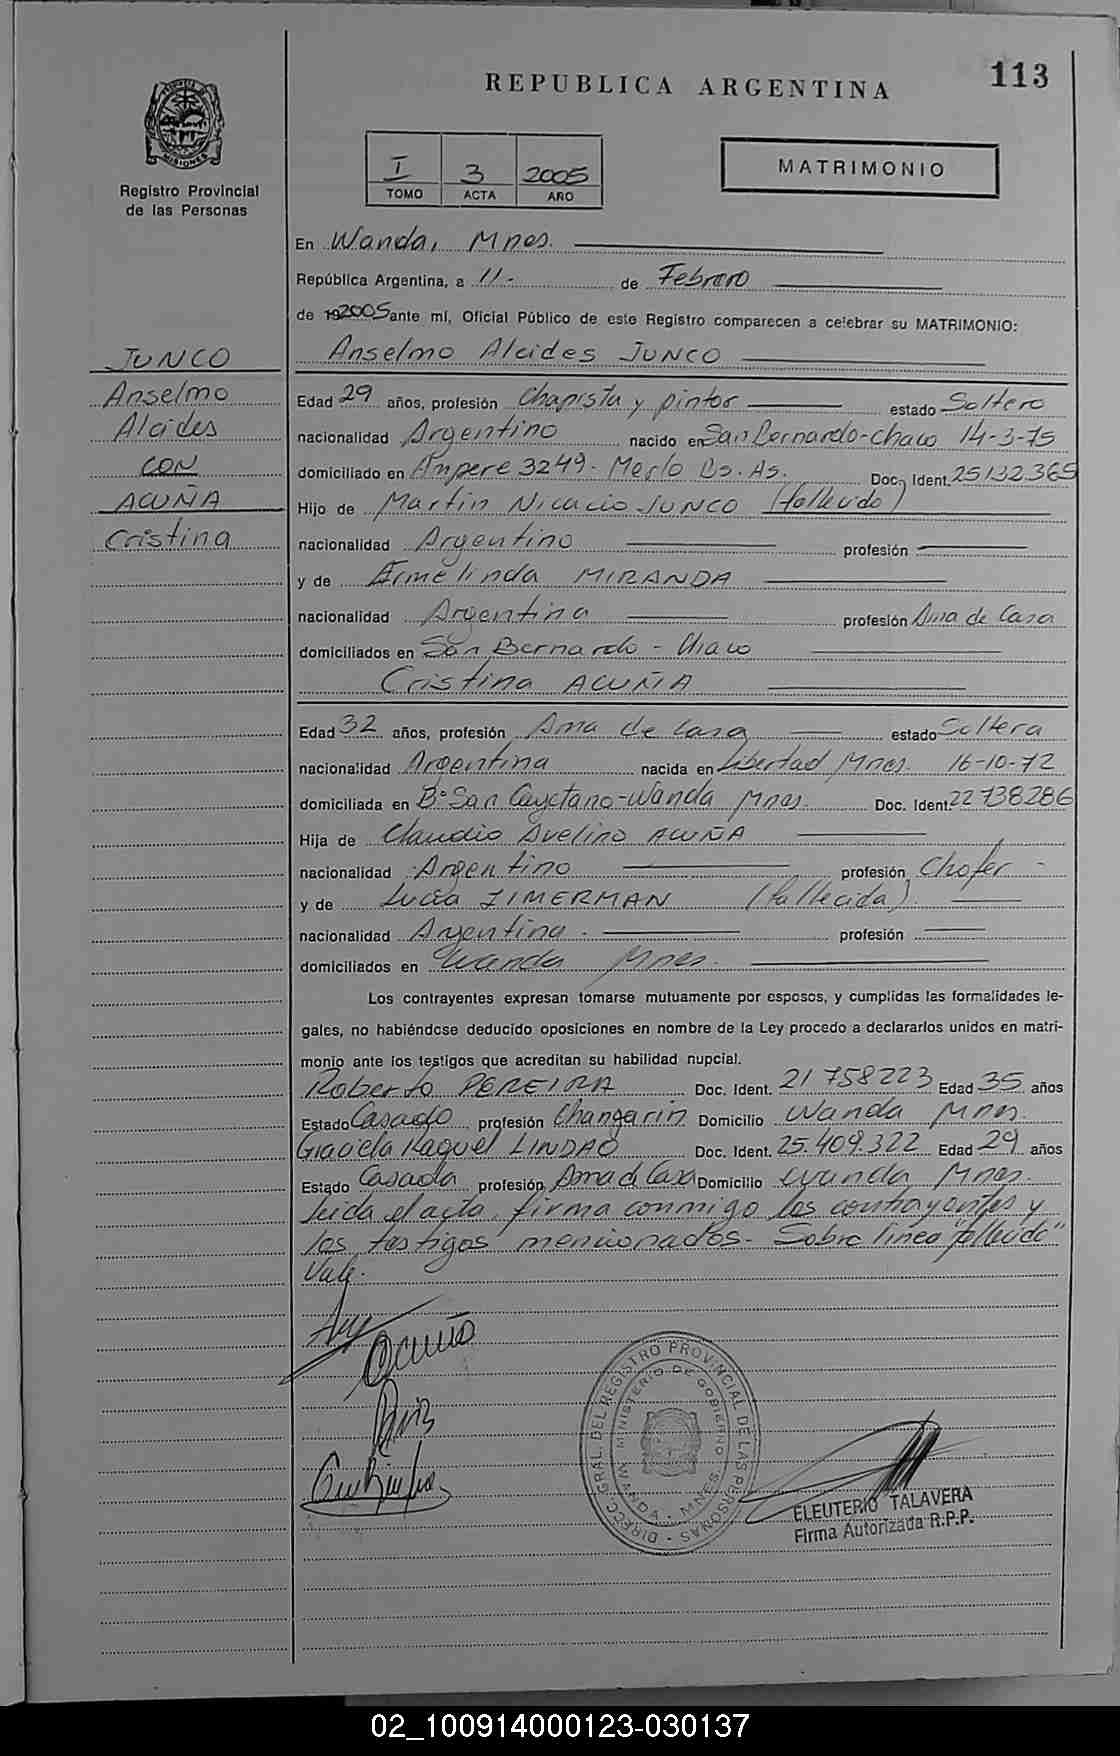 113
REPUBLICA ARGENTINA
MISIONES
Registro Provincial
de las Personas
I 3 2005
TOMO ACTA AÑO
MATRIMONIO
En Wanda, Mnes.
República Argentina, a 11- de Febrero
de 192005 ante mí, Oficial Público de este Registro comparecen a celebrar su MATRIMONIO:
JUNCO
Anselmo
Alcides
CON
ACUÑA
Cristina
Anselmo Alcides JUNCO
Edad 29 años, profesión Chapista y pintor estado Soltero
nacionalidad Argentino nacido en San Bernardo-Chaco 14-3-75
domiciliado en Ampere 3249- Merlo Bs. As. Doc. Ident. 25132.365
Hijo de Martín Nicacio JUNCO (fallecido)
nacionalidad Argentino profesión
y de Armelinda MIRANDA
nacionalidad Argentina profesión Ama de Casa
domiciliados en San Bernardo - Chaco
Cristina ACUÑA
Edad 32 años, profesión Ama de Casa estado Soltera
nacionalidad Argentina nacida en Libertad Mnes. 16-10-72
domiciliada en B° San Cayetano-Wanda Mnes. Doc. Ident. 22738286
Hija de Claudio Avelino ACUÑA
nacionalidad Argentino profesión Chofer -
y de Lucía ZIMERMAN (fallecida)
nacionalidad Argentina - profesión
domiciliados en Wanda Mnes.
Los contrayentes expresan tomarse mutuamente por esposos, y cumplidas las formalidades le-
gales, no habiéndose deducido oposiciones en nombre de la Ley procedo a declararlos unidos en matri-
monio ante los testigos que acreditan su habilidad nupcial.
Roberto PEREIRA Doc. Ident. 21758223 Edad 35 años
Estado Casado profesión Changarin Domicilio Wanda Mnes.
Graciela Raquel LINDAO Doc. Ident. 25.409.322 Edad 29 años
Estado Casada profesión Ama de Casa Domicilio Wanda Mnes.
Leida el acta, firma conmigo los contrayentes y
los testigos mencionados- Sobre linea "fallecido"
Vale.
Acuña
DIRECC. GRAL. DEL REGISTRO PROVINCIAL DE LAS PERSONAS
MINISTERIO DE GOBIERNO
WANDA - MNES.
ELEUTERIO TALAVERA
Firma Autorizada R.P.P.
02_100914000123-030137